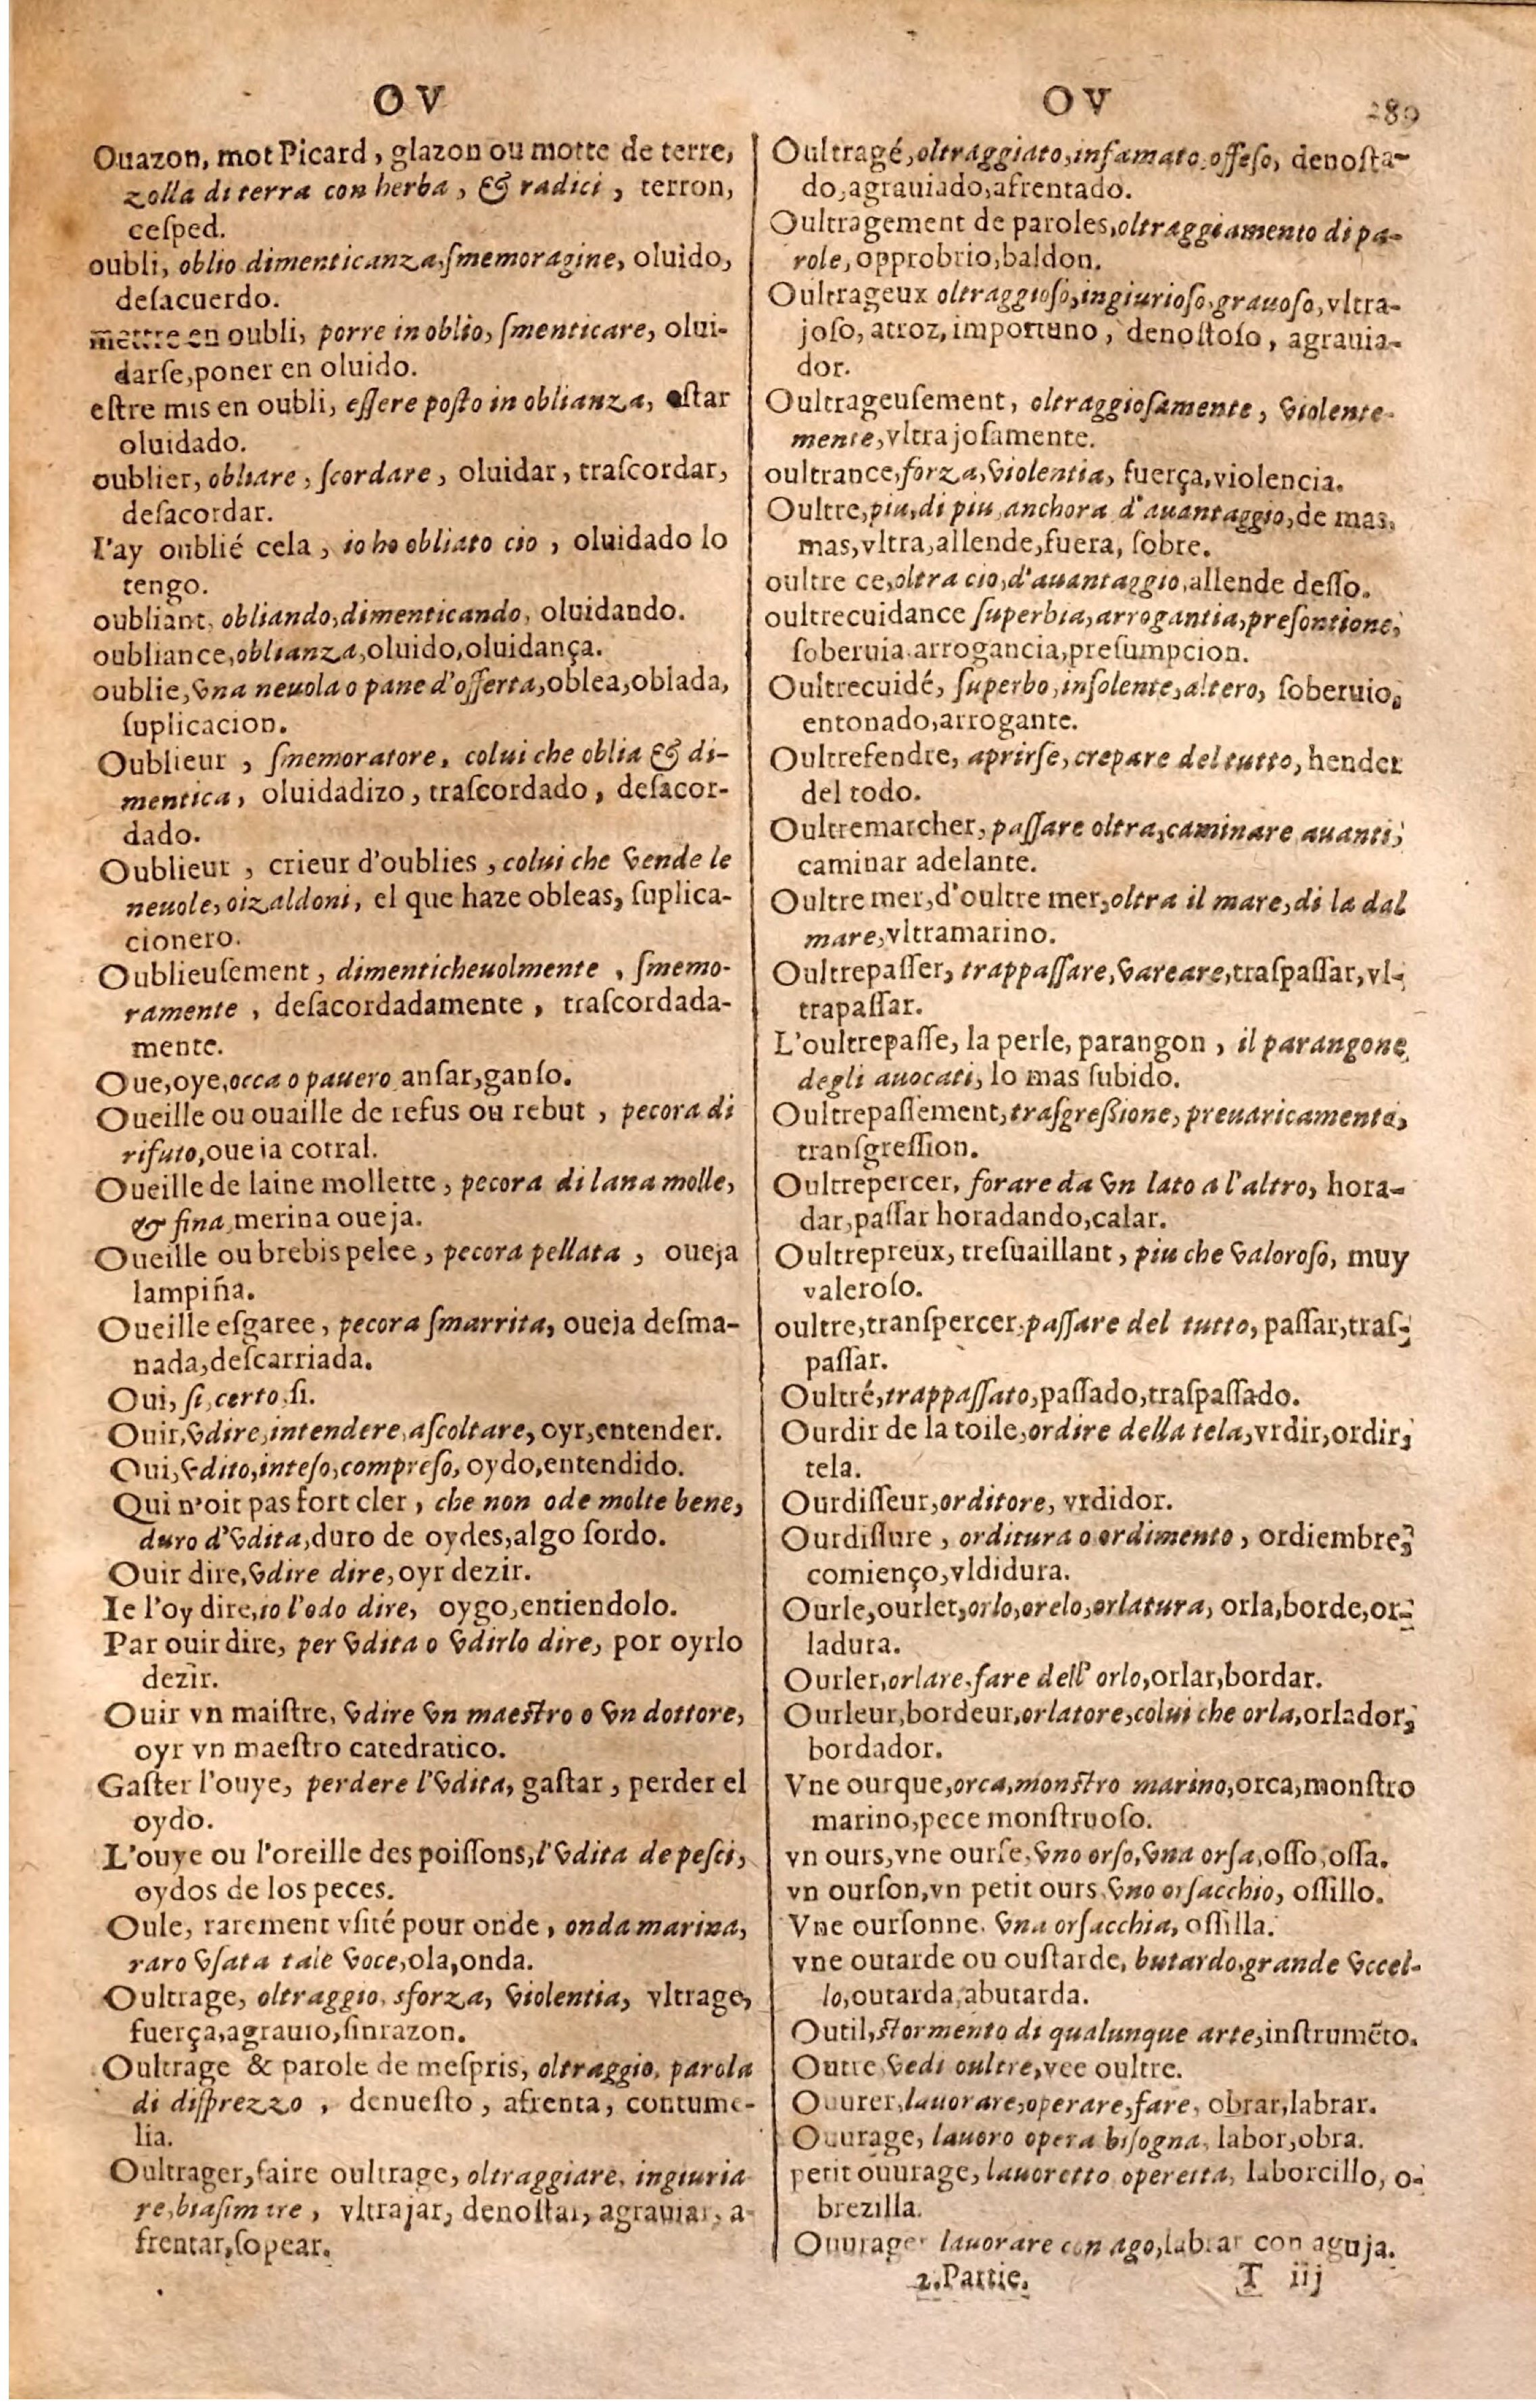 OV
Ouazon, mot Picard, glazon ou motte de terre,
zolla di terra con herba, & radici, terron,
ceſped.
oubli, oblio dimenticanza, ſmemoragine, oluido,
deſacuerdo.
mettre en oubli, porre in oblio, ſmenticare, olui-
darſe, poner en oluido.
eſtre mis en oubli, eſſere poſto in oblianza, eſtar
oluidado.
oublier, obliare, ſcordare, oluidar, traſcordar,
deſacordar.
I'ay oublié cela, io ho obliato cio, oluidado lo
tengo.
oubliant, obliando, dimenticando, oluidando.
oubliance, oblianza, oluido, oluidança.
oublie, vna neuola o pane d'offerta, oblea, oblada,
ſuplicacion.
Oublieur, ſmemoratore, colui che oblia & di-
mentica, oluidadizo, traſcordado, deſacor-
dado.
Oublieur, crieur d'oublies, colui che vende le
neuole, oizaldoni, el que haze obleas, ſuplica-
cionero.
Oublieuſement, dimenticheuolmente, ſmemo-
ramente, deſacordadamente, traſcordada-
mente.
Oue, oye, occa o pauero anſar, ganſo.
Oueille ou ouaille de refus ou rebut, pecora di
rifuto, oueia corral.
Oueille de laine mollette, pecora di lana molle,
& fina, merina oueja.
Oueille ou brebis pelee, pecora pellata, oueja
lampiña.
Oueille eſgaree, pecora ſmarrita, oueja deſma-
nada, deſcarriada.
Oui, ſi, certo, ſi.
Ouir, vdire, intendere, aſcoltare, oyr, entender.
Oui, vdito, inteſo, compreſo, oydo, entendido.
Qui n'oit pas fort cler, che non ode molte bene,
duro d'vdita, duro de oydes, algo ſordo.
Ouir dire, vdire dire, oyr dezir.
Ie l'oy dire, io l'odo dire, oygo, entiendolo.
Par ouir dire, per vdita o vdirlo dire, por oyrlo
dezir.
Ouir vn maiſtre, vdire vn maeſtro o vn dottore,
oyr vn maeſtro catedratico.
Gaſter l'ouye, perdere l'vdita, gaſtar, perder el
oydo.
L'ouye ou l'oreille des poiſſons, l'vdita de peſci,
oydos de los peces.
Oule, rarement vſité pour onde, onda marina,
raro vſata tale voce, ola, onda.
Oultrage, oltraggio, sforza, violentia, vltrage,
fuerça, agrauio, ſinrazon.
Oultrage & parole de meſpris, oltraggio, parola
di diſprezzo, denueſto, afrenta, contume-
lia.
Oultrager, faire oultrage, oltraggiare, ingiuria
re, biaſimare, vltrajar, denoſtar, agrauiar, a-
frentar, ſopear.
OV 289
Oultragé, oltraggiato, infamato, offeſo, denoſta-
do, agrauiado, afrentado.
Oultragement de paroles, oltraggiamento di pa-
role, opprobrio, baldon.
Oultrageux oltraggioſo, ingiurioſo, grauoſo, vltra-
joſo, atroz, importuno, denoſtoſo, agrauia-
dor.
Oultrageuſement, oltraggioſamente, violente-
mente, vltrajoſamente.
oultrance, forza, violentia, fuerça, violencia.
Oultre, piu, di piu, anchora d'auantaggio, de mas,
mas, vltra, allende, fuera, ſobre.
oultre ce, oltra cio, d'auantaggio, allende deſſo.
oultrecuidance ſuperbia, arrogantia, preſontione,
ſoberuia arrogancia, preſumpcion.
Oultrecuidé, ſuperbo, inſolente, altero, ſoberuio,
entonado, arrogante.
Oultrefendre, aprirſe, crepare del tutto, hender
del todo.
Oultremarcher, paſſare oltra, caminare auanti,
caminar adelante.
Oultre mer, d'oultre mer, oltra il mare, di la dal
mare, vltramarino.
Oultrepaſſer, trappaſſare, vareare, traſpaſſar, vl-
trapaſſar.
L'oultrepaſſe, la perle, parangon, il parangone
degli auocati, lo mas ſubido.
Oultrepaſſement, traſgreſsione, preuaricamente,
tranſgreſſion.
Oultrepercer, forare da vn lato a l'altro, hora-
dar, paſſar horadando, calar.
Oultrepreux, treſuaillant, piu che valoroſo, muy
valeroſo.
oultre, tranſpercer, paſſare del tutto, paſſar, traſ-
paſſar.
Oultré, trappaſſato, paſſado, traſpaſſado.
Ourdir de la toile, ordire della tela, vrdir, ordir,
tela.
Ourdiſſeur, orditore, vrdidor.
Ourdiſſure, orditura o ordimento, ordiembre,
comienço, vldidura.
Ourle, ourlet, orlo, orelo, orlatura, orla, borde, or-
ladura.
Ourler, orlare, fare dell' orlo, orlar, bordar.
Ourleur, bordeur, orlatore, colui che orla, orlador,
bordador.
Vne ourque, orca, monſtro marino, orca, monſtro
marino, pece monſtruoſo.
vn ours, vne ourſe, vno orſo, vna orſa, oſſo, oſſa.
vn ourſon, vn petit ours, vno orſacchio, oſſillo.
Vne ourſonne, vna orſacchia, oſſilla.
vne outarde ou ouſtarde, butardo, grande vccel-
lo, outarda, abutarda.
Outil, ſtormento di qualunque arte, inſtrumẽto.
Outre vedi oultre, vee oultre.
Ouurer, lauorare, operare, fare, obrar, labrar.
Ouurage, lauoro opera biſogna, labor, obra.
petit ouurage, lauoretto operetta, laborcillo, o-
brezilla.
Ouurager lauorare con ago, labrar con aguja.
2. Partie. T iij